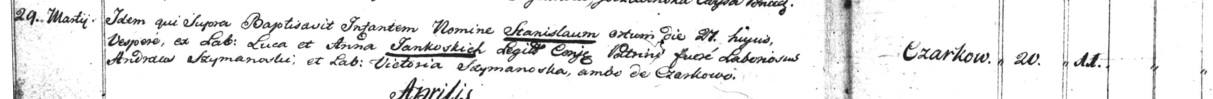 29. Martij. Idem qui Supra Baptisavit Infantem Nomine Stanislaum ortum die 27. hujus,
Vespere, ex Lab: Luca et Anna Jankoskich Legit. Conjg. Patrini fuere Laboriosus
Andreas Szymanoski, et Lab: Victoria Szymanoska, ambo de Czarkowo.
Czarkow. " 20. " 11. " "
Aprilis